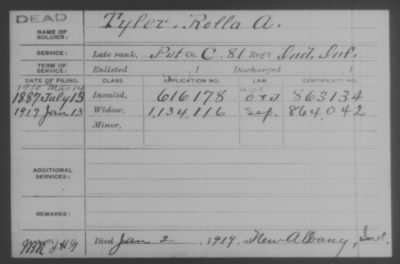 DEAD
NAME OF SOLDIER: Tyler, Rolla A.
SERVICE: Late rank, Pvt Co. C. 81 Reg't Ind. Inf.
TERM OF SERVICE: Enlisted , 1 Discharged , 1
DATE OF FILING. CLASS APPLICATION NO. LAW. CERTIFICATE NO.
1887 July 13 Invalid, 616178 863134
1919 Jan 13 Widow, 1,134,116 Sep. 864,042
Minor,
ADDITIONAL SERVICES:
REMARKS:
Died Jan 2, 1919, at New Albany, Ind.